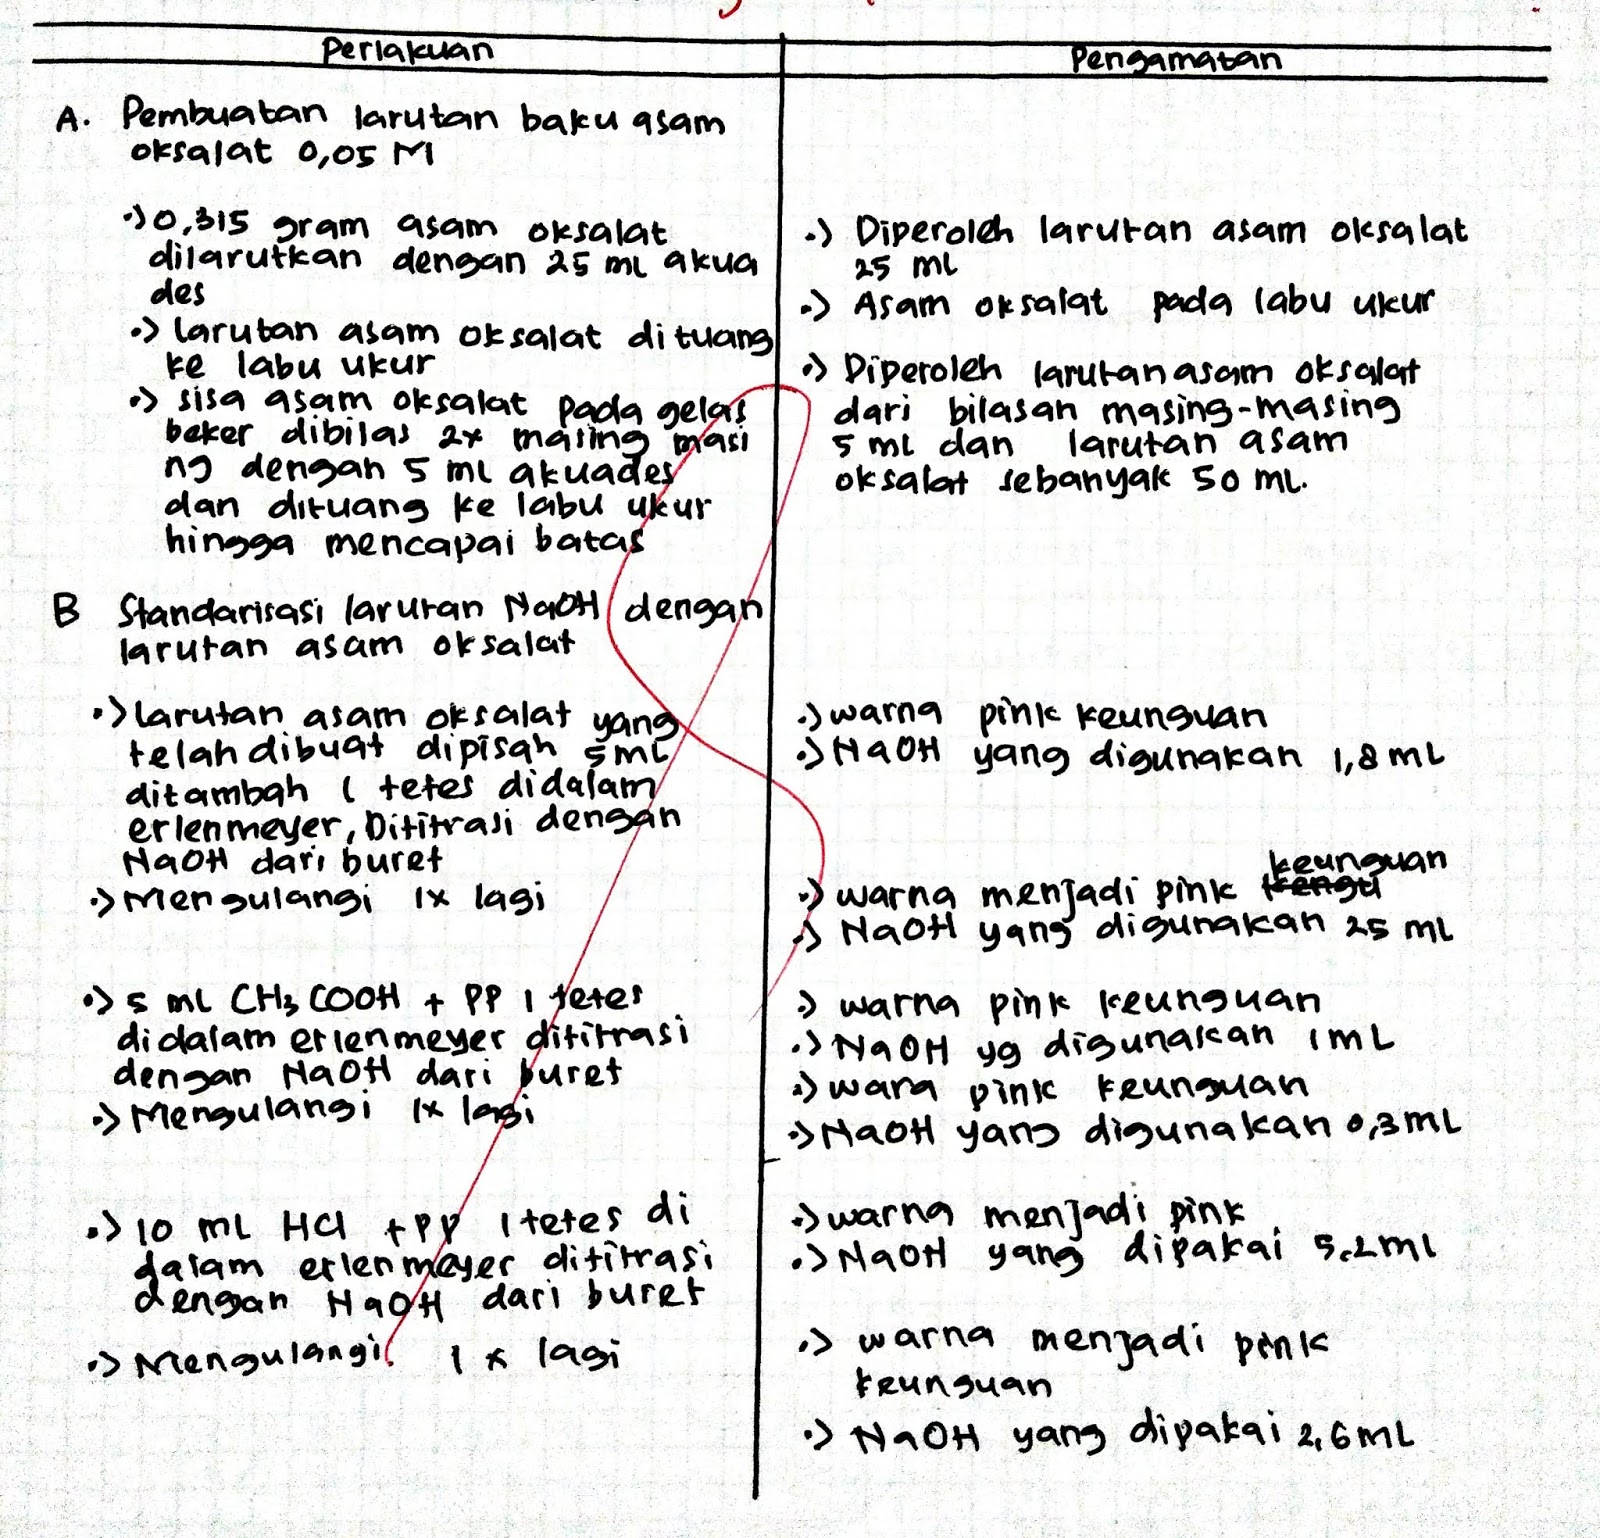 Perlakuan
Pengamatan
A. Pembuatan larutan baku asam
oksalat 0,05 M
•> 0,315 gram asam oksalat
dilarutkan dengan 25 ml akua
des
•> larutan asam oksalat dituang
ke labu ukur
•> sisa asam oksalat pada gelas
beker dibilas 2x masing masi
ng dengan 5 ml akuades
dan dituang ke labu ukur
hingga mencapai batas
•> Diperoleh larutan asam oksalat
25 ml
•> Asam oksalat pada labu ukur
•> Diperoleh larutan asam oksalat
dari bilasan masing-masing
5 ml dan larutan asam
oksalat sebanyak 50 ml.
B Standarisasi larutan NaOH dengan
larutan asam oksalat
•> larutan asam oksalat yang
telah dibuat dipisah 5ml
ditambah 1 tetes didalam
erlenmeyer, Dititrasi dengan
NaOH dari buret
•> Mengulangi 1x lagi
•> warna pink keunguan
•> NaOH yang digunakan 1,8 ml
keunguan
•> warna menjadi pink kengu
•> NaOH yang digunakan 25 ml
•> 5 ml CH3COOH + PP 1 tetes
didalam erlenmeyer dititrasi
dengan NaOH dari buret
•> Mengulangi 1x lagi
•> warna pink keunguan
•> NaOH yg digunakan 1 mL
•> wara pink keunguan
•> NaOH yang digunakan 0,3 ml
•> 10 ml HCl + PP 1 tetes di
dalam erlenmeyer dititrasi
dengan NaOH dari buret
•> Mengulangi 1 x lagi
•> warna menjadi pink
•> NaOH yang dipakai 5.2 ml
•> warna menjadi pink
keunguan
•> NaOH yang dipakai 2,6 ml